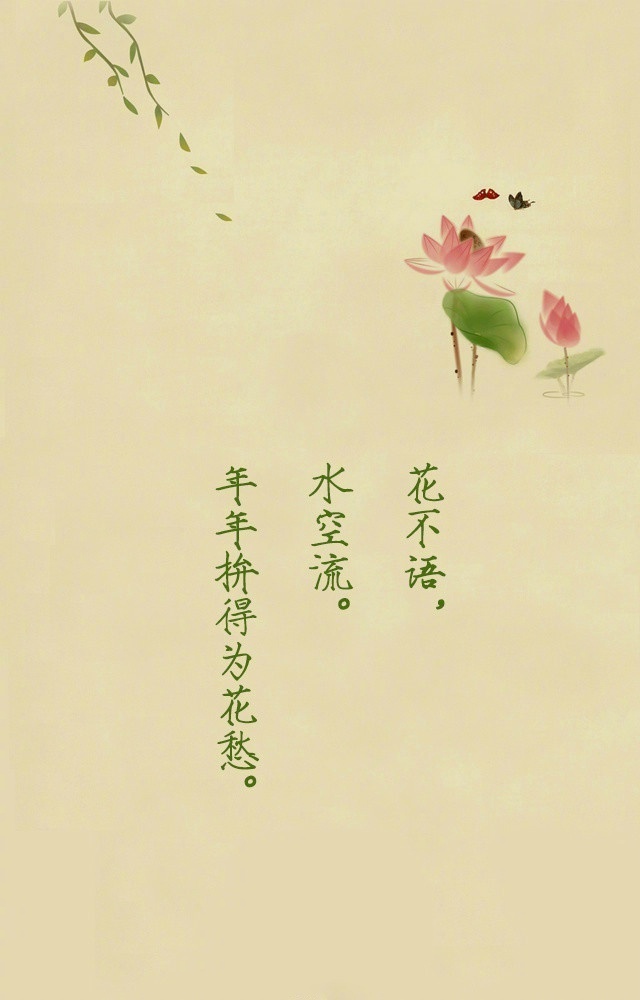 花不语，
水空流。
年年拚得为花愁。